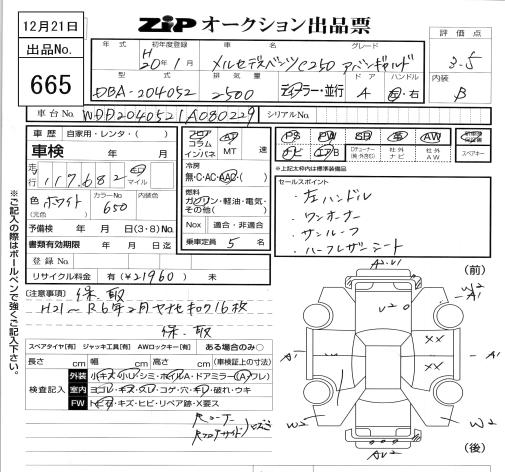 12月21日
ZIP オークション出品票
出品No.
665
年式 初年度登録 車名 グレード
H20年1月 メルセデスベンツC250 アバンギャルド
評価点
3.5
型式 排気量 ディーラー・並行 ドア ハンドル
DBA-204052 2500 4 左・右
内装
B
車台No. WDD2040521A080229 シリアルNo.
車歴 自家用・レンタ・( )
フロア コラム インパネ AT MT 速
PS PW SR 革 AW
新車時保証書
車検 年 月
冷房
無・C・AC・AAC・( )
ナビ エアB TVチューナー(純・外含む) 社外ナビ 社外AW スペアキー
*上記太枠内は標準装備品
走行 117,682 マイル
燃料
ガソリン・軽油・電気・その他( )
セールスポイント
・左ハンドル
・ワンオーナー
・サンルーフ
・ハーフレザーシート
色 ホワイト (元色) カラーNo. 650 内装色
Nox 適合・非適合
予備検 年 月 日(3・8)No.
書類有効期限 年 月 日迄
乗車定員 5 名
登録No.
リサイクル料金 有(¥21960) 未
(注意事項) 保.取
H21〜R6年2月ヤナセキロク16枚
保.取
スペアタイヤ[有] ジャッキ工具[有] AWロックキー[有] ある場合のみ○
長さ cm 幅 cm 高さ cm (車検証上の寸法)
検査記入
外装 小キズ・小U・シミ・ホイルA・ドアミラー(A・ワレ)
室内 ヨゴレ・キズ・スレ・コゲ・穴・キレ・破れ・ウキ
FW トビ石・キズ・ヒビ・リペア跡・X要ス
※ご記入の際はボールペンで強くご記入下さい。
(前)
A2.U1
W2
A1
U2
A1
XX
XX
A1
W2
W2
AU2
(後)